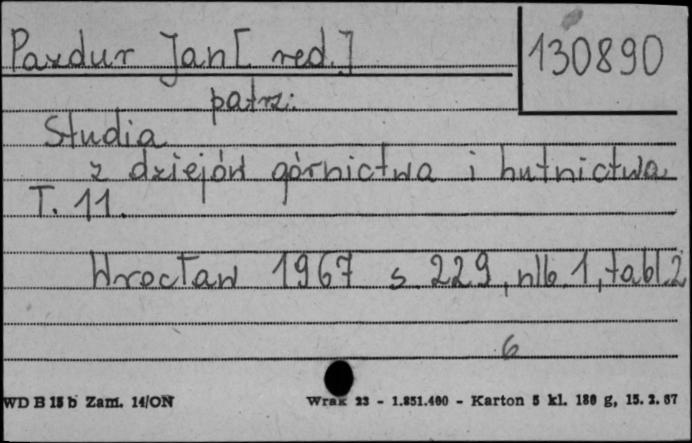 Pazdur Jan [red.]
130890
patrz:
Studia
z dziejów górnictwa i hutnictwa
T. 11.
Wrocław 1967 s. 229, nlb. 1, tabl. 2
6
WD B 15 b Zam. 14/ON
Wrak 23 - 1.851.400 - Karton 5 kl. 180 g, 15. 2. 67